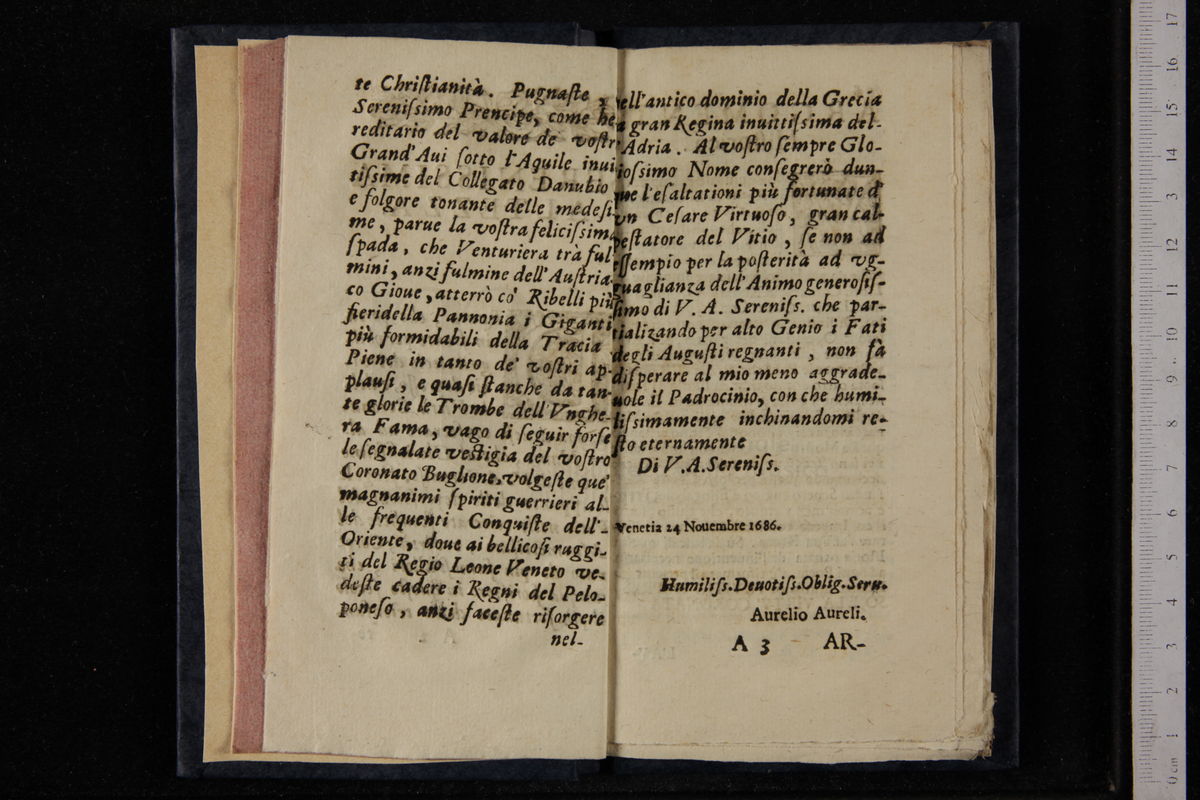 te Chriſtianità. Pugnaſte,
Sereniſsimo Prencipe, come he
reditario del valore de' voſtr
Grand'Aui ſotto l'Aquile inui
tiſsime del Collegato Danubio
e folgore tonante delle medeſi
me, parue la voſtra feliciſsima
ſpada, che Venturiera trà ful
mini, anzi fulmine dell'Auſtria-
co Gioue, atterrò co' Ribelli più
fieri della Pannonia i Giganti
più formidabili della Tracia
Piene in tanto de' voſtri ap-
plauſi, e quaſi ſtanche da tan-
te glorie le Trombe dell'Vnghe-
ra Fama, vago di ſeguir forſe
le ſegnalate veſtigia del voſtro
Coronato Buglione, volgeſte que'
magnanimi ſpiriti guerrieri al-
le frequenti Conquiſte dell'-
Oriente, doue ai bellicoſi ruggi-
ti del Regio Leone Veneto ve-
deſte cadere i Regni del Pelo-
poneſo, anzi faceſte riſorgere
nel-
ell'antico dominio della Grecia
a gran Regina inuittiſsima del-
Adria. Al voſtro ſempre Glo-
ioſsimo Nome conſegrerò dun-
ue l'eſaltationi più fortunate d'
vn Ceſare Virtuoſo, gran cal-
peſtatore del Vitio, ſe non ad
eſſempio per la poſterità ad vg-
guaglianza dell'Animo generoſiſ-
ſimo di V. A. Sereniſs. che par-
tializando per alto Genio i Fati
degli Auguſti regnanti, non fà
diſperare al mio meno aggrade-
uole il Padrocinio, con che humi-
liſsimamente inchinandomi re-
ſto eternamente
Di V. A. Sereniſs.
Venetia 24 Nouembre 1686.
Humiliſs. Deuotiſs. Oblig. Seru.
Aurelio Aureli.
A 3 AR-
0 cm 1 2 3 4 5 6 7 8 9 10 11 12 13 14 15 16 17